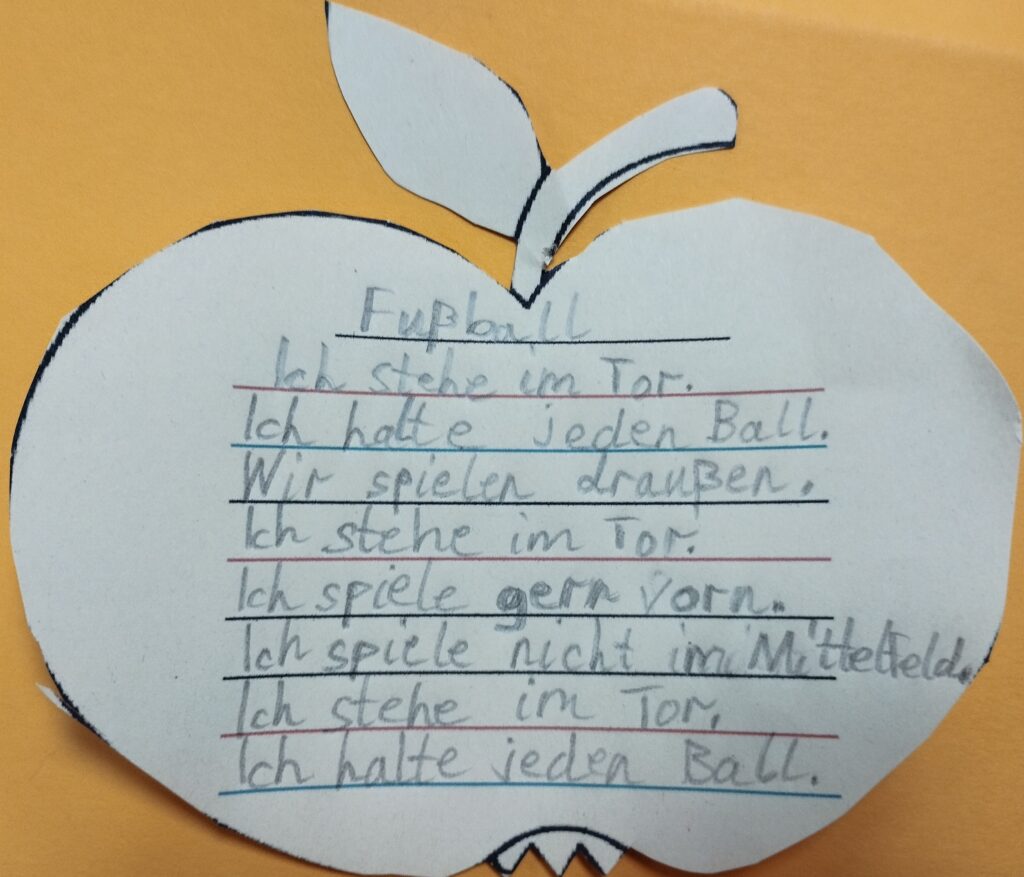 Fußball
Ich stehe im Tor.
Ich halte jeden Ball.
Wir spielen draußen.
Ich stehe im Tor.
Ich spiele gern vorn.
Ich spiele nicht im Mittelfeld.
Ich stehe im Tor.
Ich halte jeden Ball.